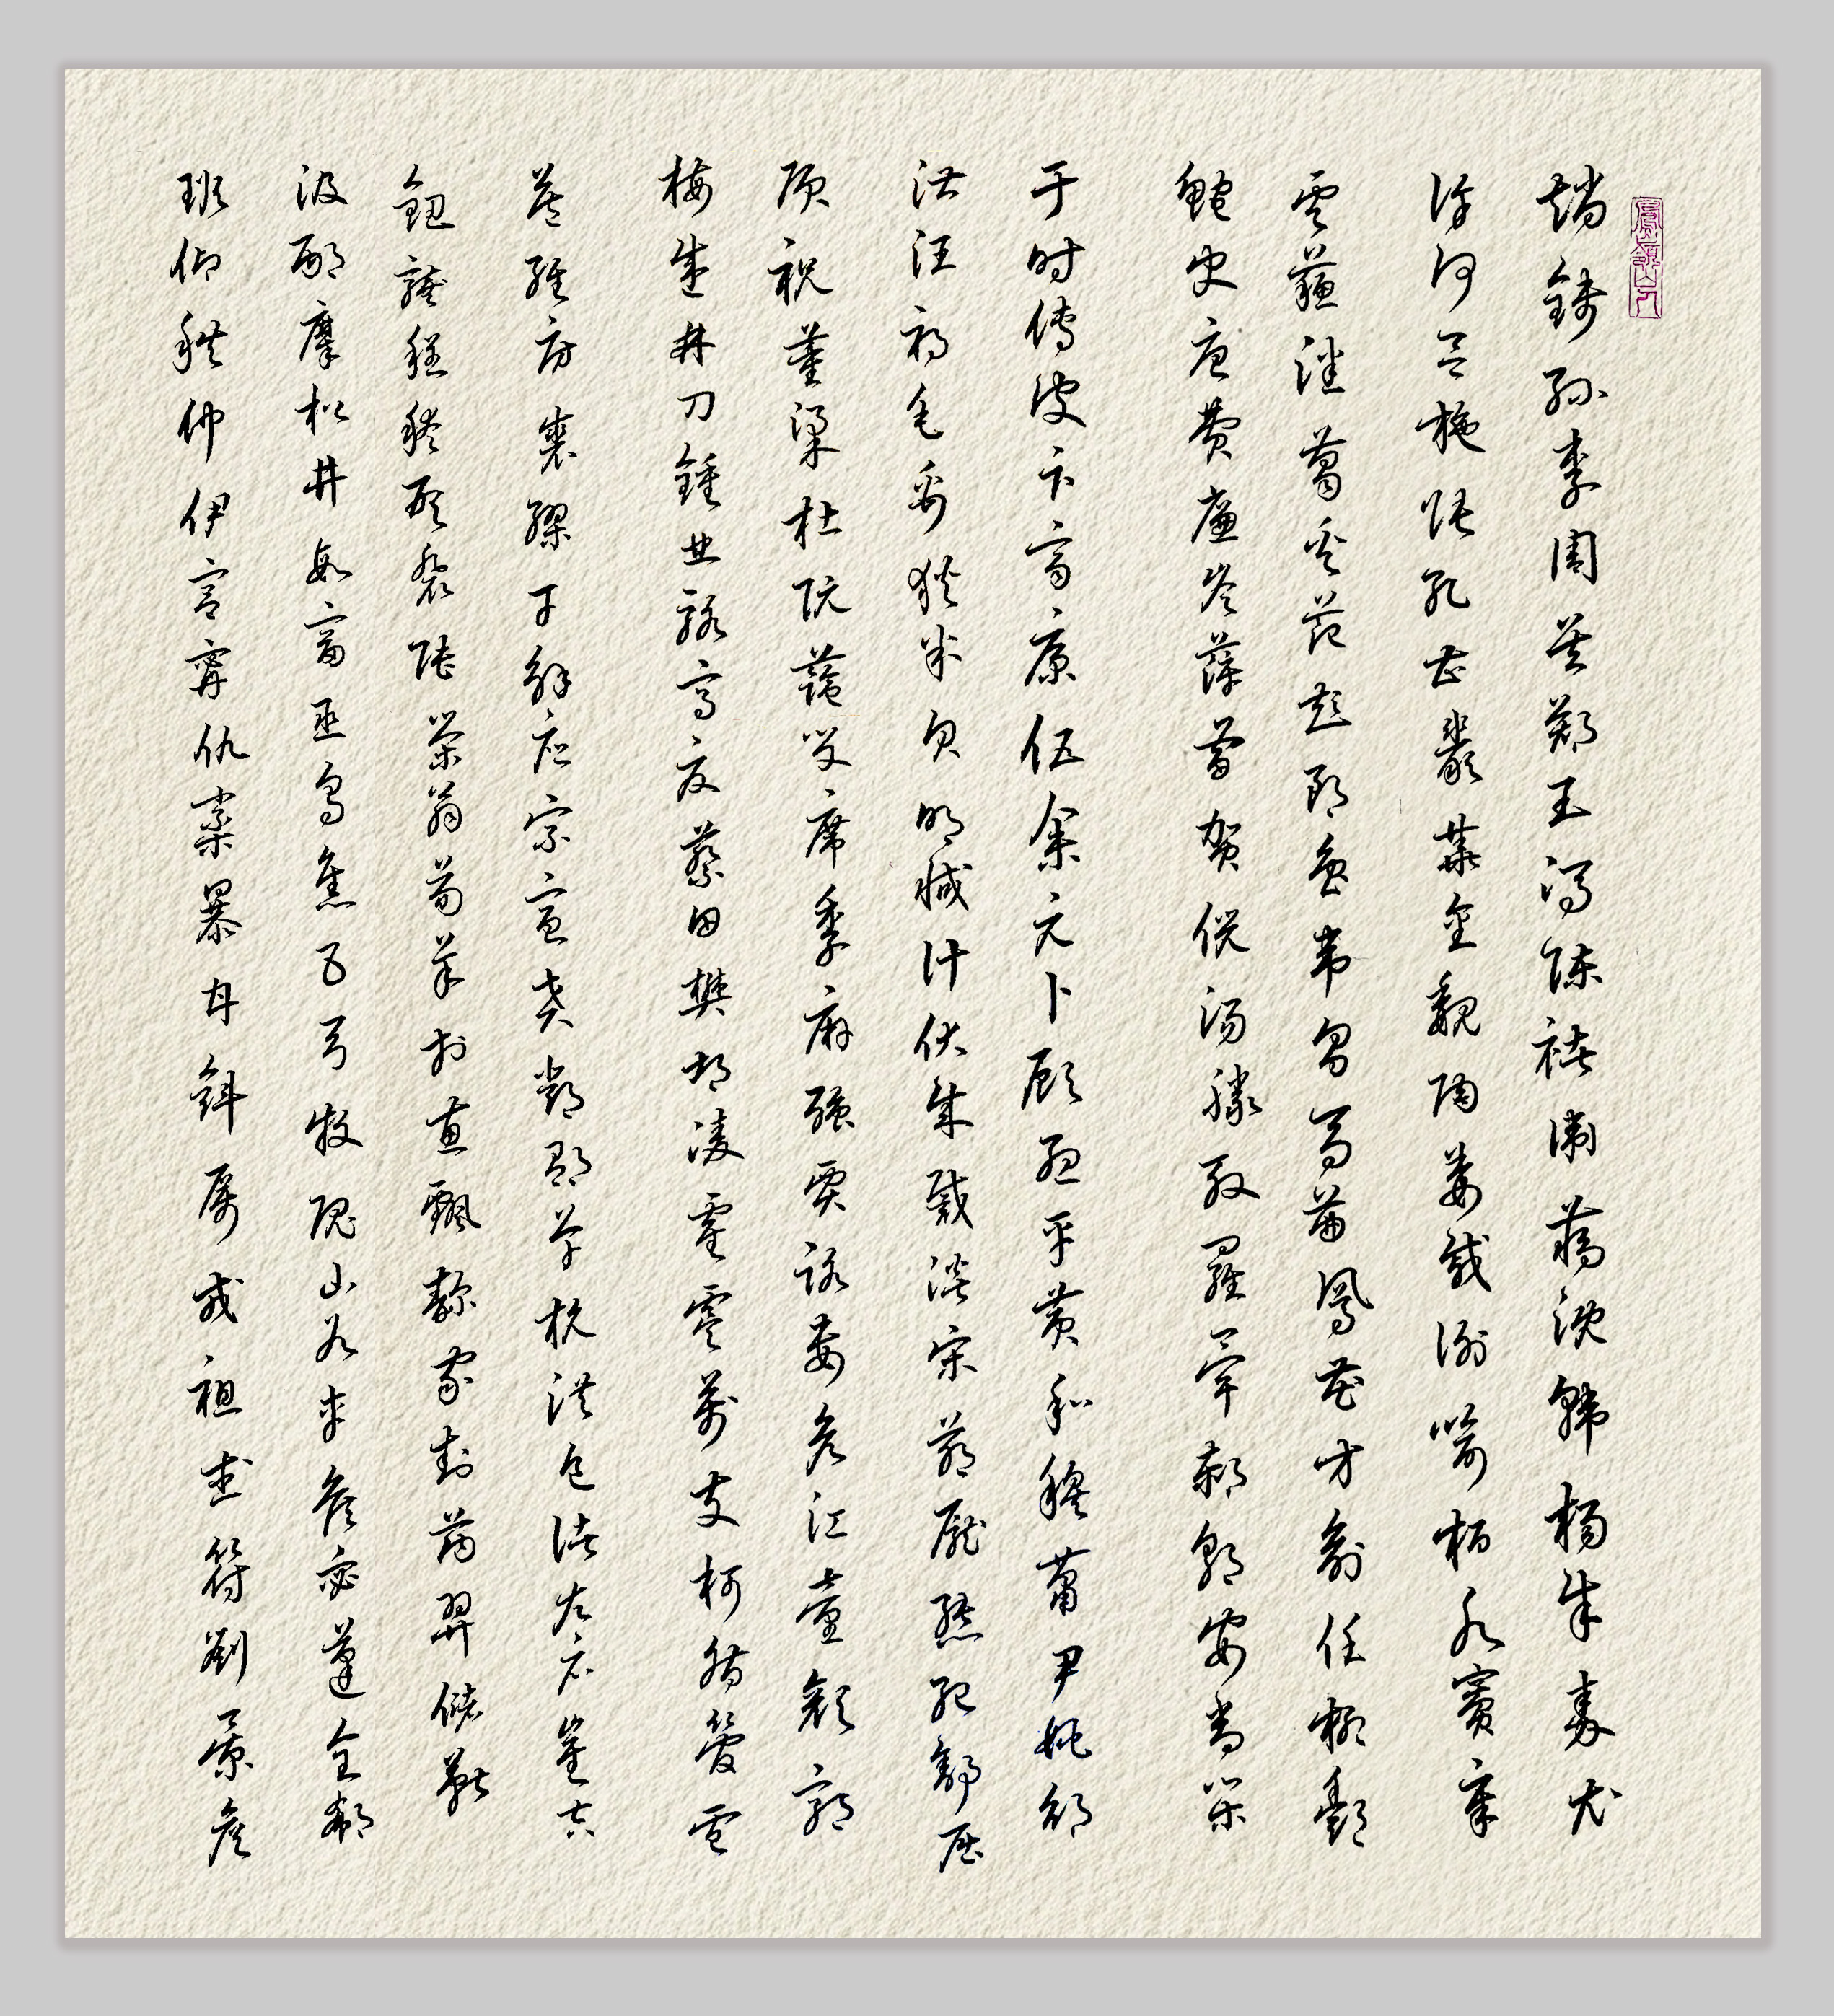 趙錢孫李周吳鄭王馮陳褚衛蔣沈韓楊朱秦尤
許何呂施張孔曹嚴華金魏陶姜戚謝喻柏水竇章
雲蘇潘葛奚范彭郎魯韋昌馬苗鳳花方俞任柳酆
鮑史唐費廉岑薛雷賀倪湯滕殷羅畢郝鄔安常樂
于時傅皮卞齊康伍余元卜顧孟平黃和穆蕭尹姚邵
湛汪祁毛禹狄米貝明臧計伏成戴談宋茅龐熊紀舒屈
項祝董梁杜阮藍閔席季麻強賈路婁危江童顏郭
梅盛林刁鍾丘駱高夏蔡田樊胡凌霍虞萬支柯昝管盧
莫經房裘繆干解應宗宣賁鄧郁單杭洪包諸左石崔吉
鈕龔程嵇邢裴陸榮翁荀羊於惠甄麴家封芮羿儲靳
汲邴糜松井段富巫烏焦巴弓牧隗山谷車侯宓蓬全郗
班仰秋仲伊宮寧仇欒暴甘鈄厲戎祖武符劉景詹